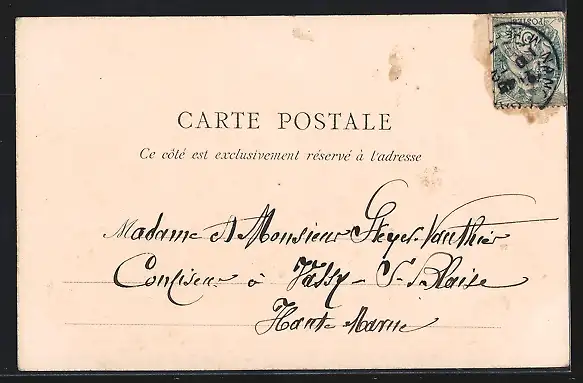 CARTE POSTALE
Ce côté est exclusivement réservé à l'adresse
Madame et Monsieur Steyer-Vauthier
Confiseur à Vassy - St Blaise
Haute Marne